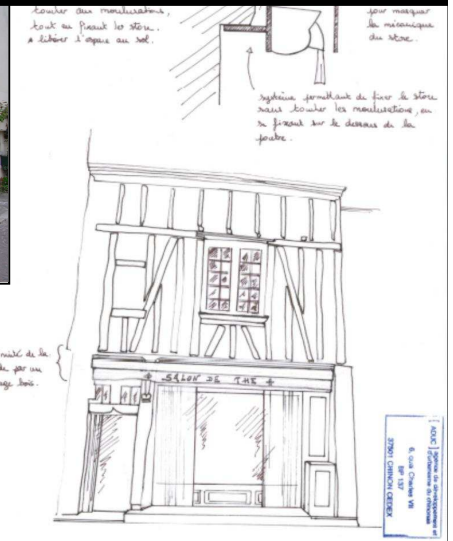 toucher aux moulurations,
tout en fixant le store.
* libérer l'espace au sol.
pour masquer
la mécanique
du store.
système permettant de fixer le store
sans toucher les moulurations, en
se fixant sur le dessous de la
poutre.
de la
par un
bois.
* SALON DE THE *
ADUC agence de développement et
d'urbanisme du chinonais
6, quai Charles VII
BP 137
37501 CHINON CEDEX